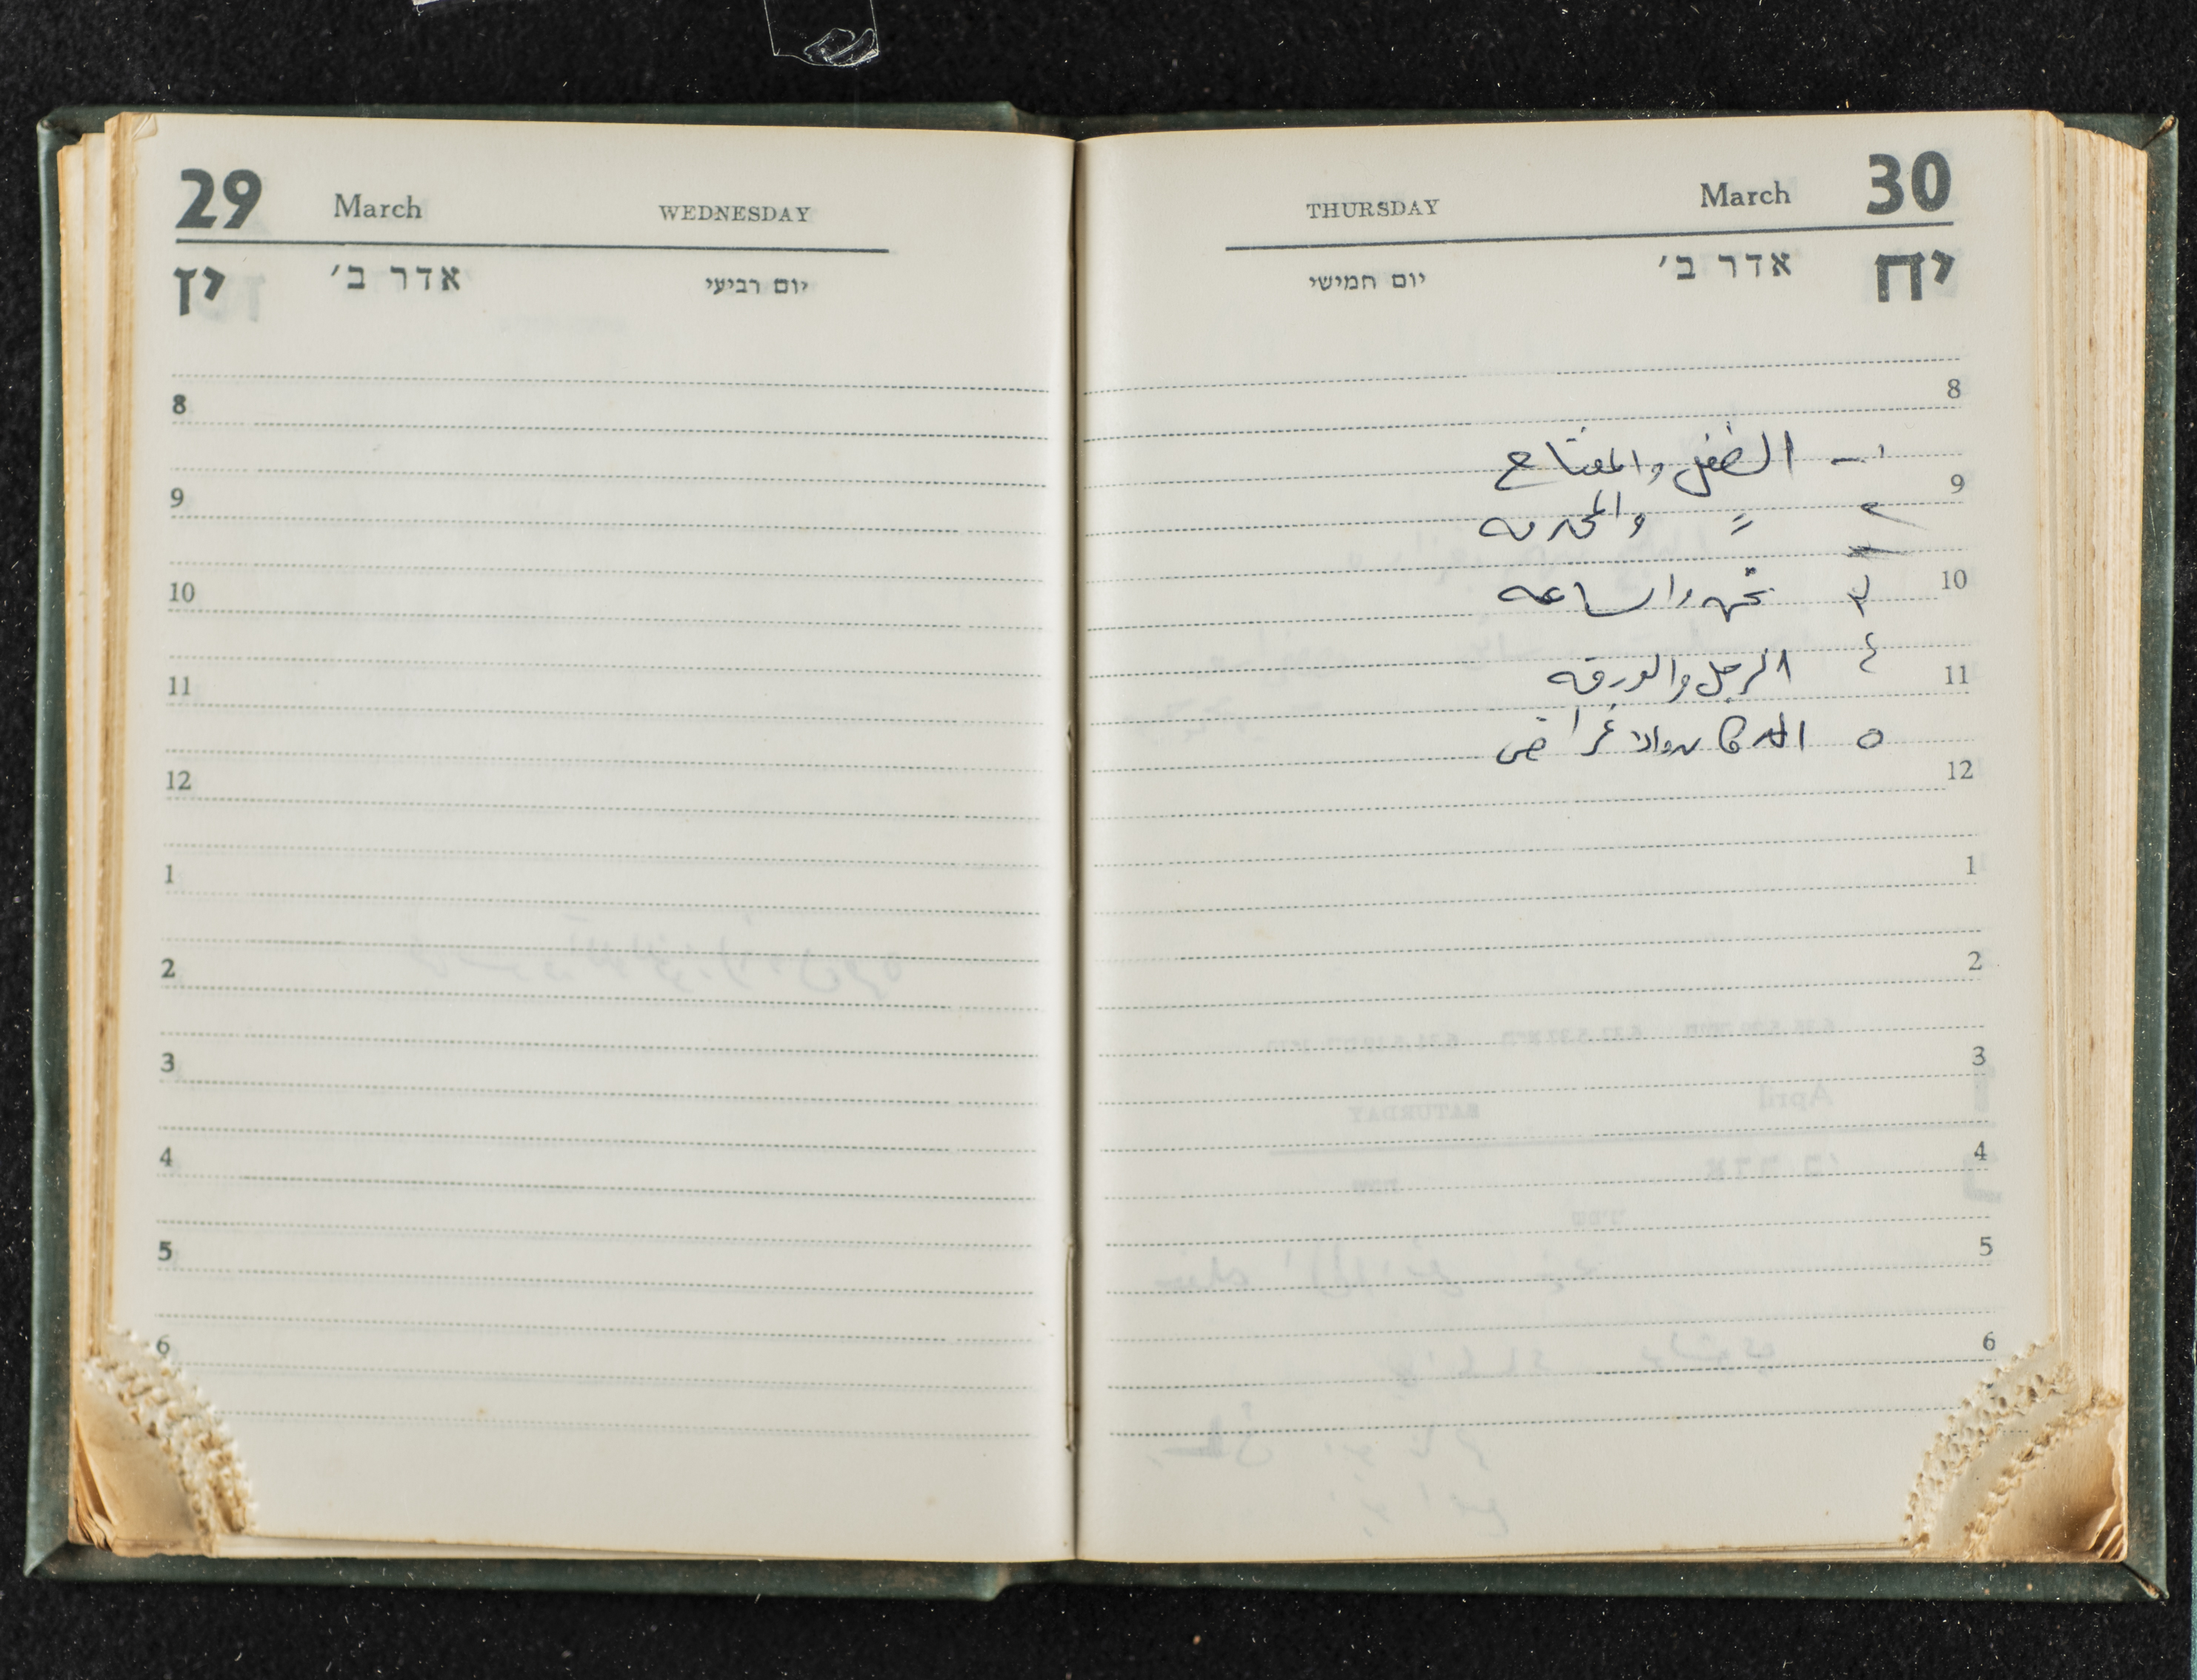 29 March WEDNESDAY
יז אדר ב׳ יום רביעי
8
9
10
11
12
1
2
3
4
5
6
THURSDAY March 30
יח אדר ב׳ יום חמישי
8
١ - الطفل والمفتاح
9
٢ = والمحرمه
10
٣ والساعه
11
٤ الرجل والورقه
٥ الدكان والاغراض
12
1
2
3
4
5
6